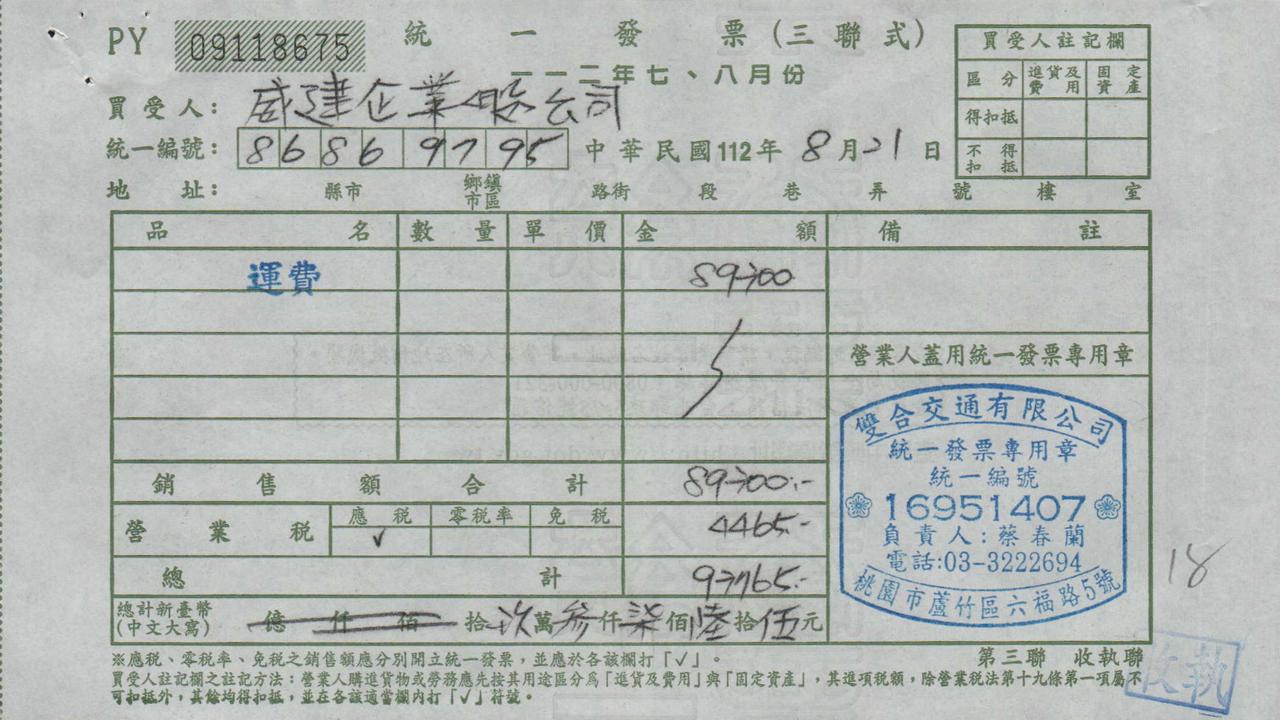 PY 09118675 統一發票(三聯式)
一一二年七、八月份
買受人: 威建企業股公司
統一編號: 86869795 中華民國112年8月21日
地址: 縣市 鄉鎮市區 路街 段 巷 弄 號 樓 室
買受人註記欄
區分 進貨及費用 固定資產
得扣抵
不得扣抵
品名 數量 單價 金額 備註
運費 89300
營業人蓋用統一發票專用章
銷售額合計 89300.-
營業稅 應稅 零稅率 免稅 4465.-
✓
總計 93765.-
總計新臺幣(中文大寫) 億仟佰拾玖萬參仟柒佰陸拾伍元
雙合交通有限公司
統一發票專用章
統一編號
16951407
負責人:蔡春蘭
電話:03-3222694
桃園市蘆竹區六福路5號
18
第三聯 收執聯
收執
※應稅、零稅率、免稅之銷售額應分別開立統一發票,並應於各該欄打「✓」。
買受人註記欄之註記方法:營業人購進貨物或勞務應先按其用途區分為「進貨及費用」與「固定資產」,其進項稅額,除營業稅法第十九條第一項屬不
可扣抵外,其餘均得扣抵,並在各該適當欄內打「✓」符號。